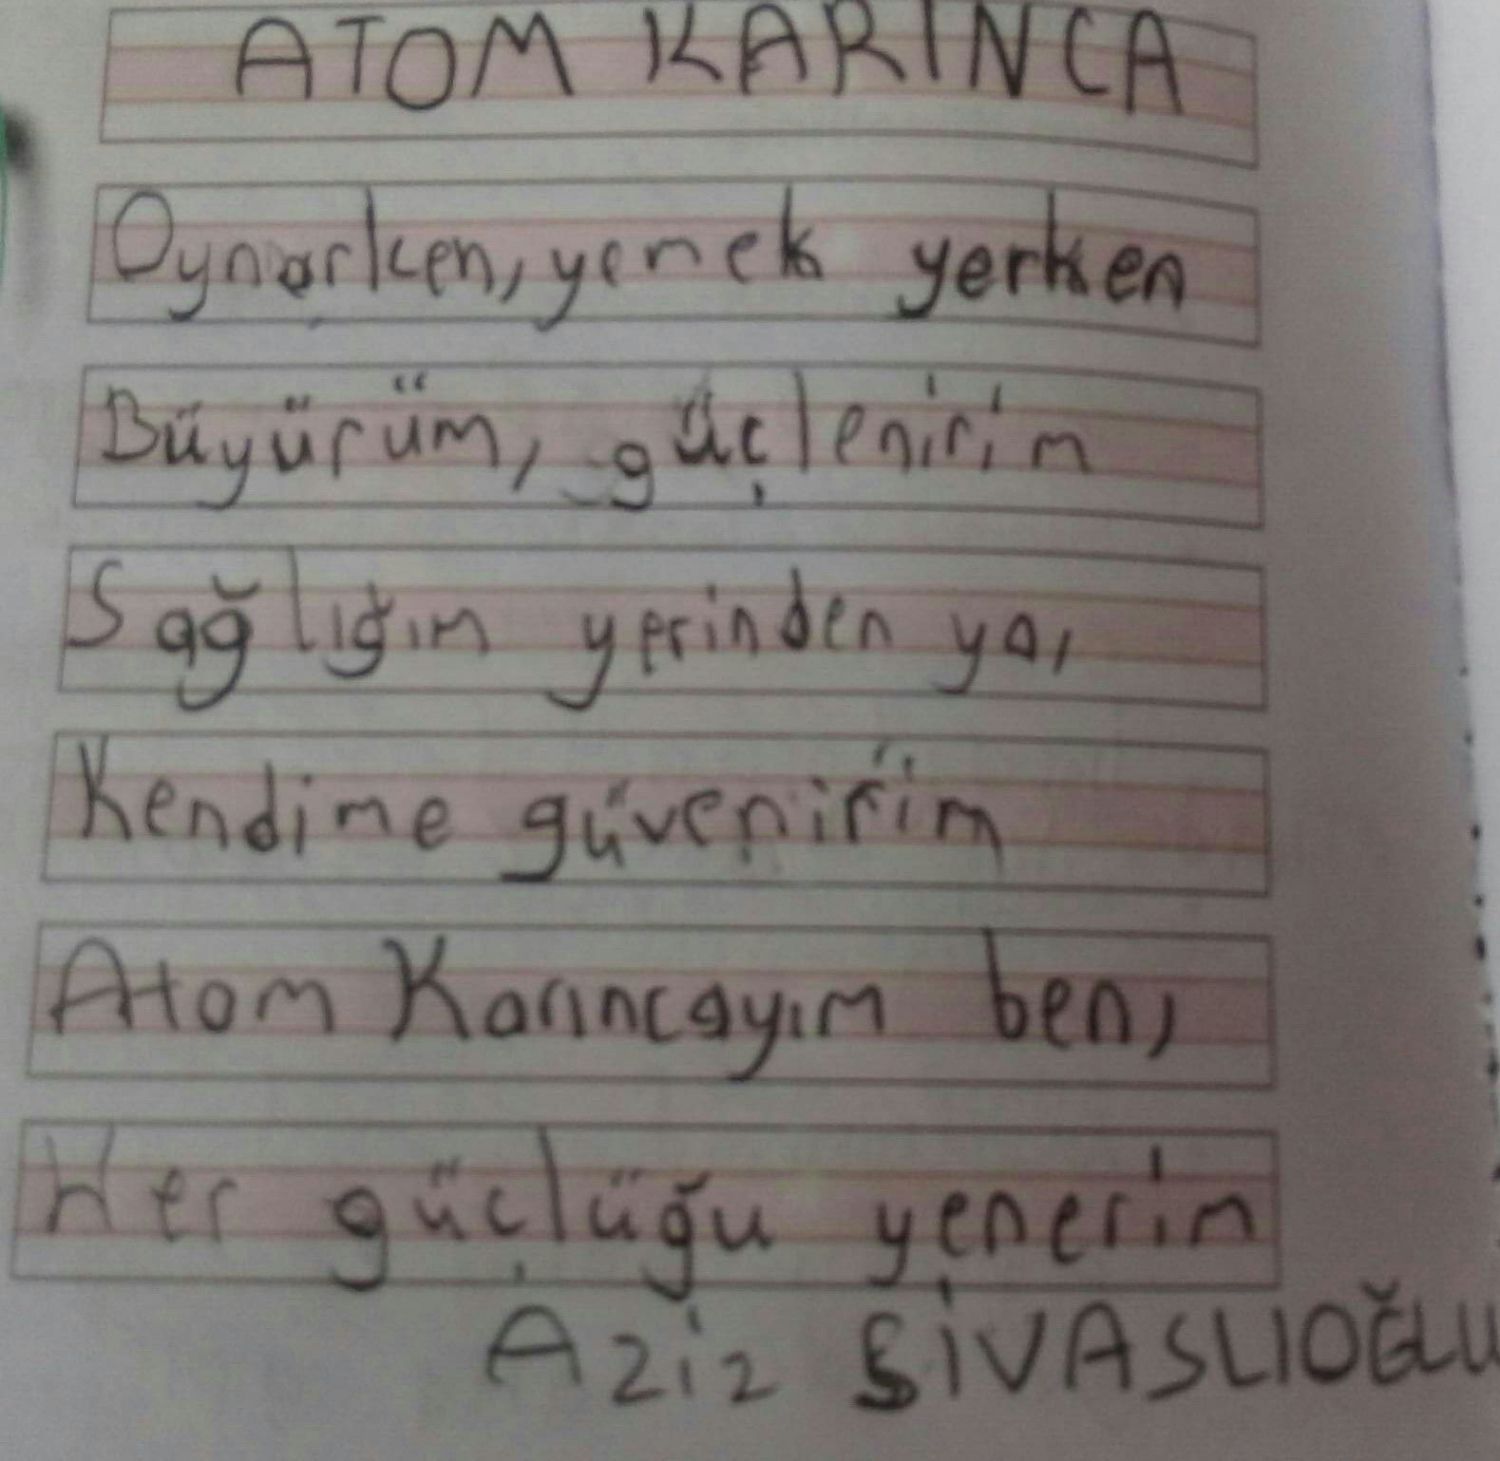 ATOM KARINCA
Oynarken, yemek yerken
Büyürüm, güçlenirim
Sağlığım yerinden ya,
Kendime güvenirim
Atom Karıncayım ben,
Her güçlüğu yenerim
Aziz SİVASLIOĞLU